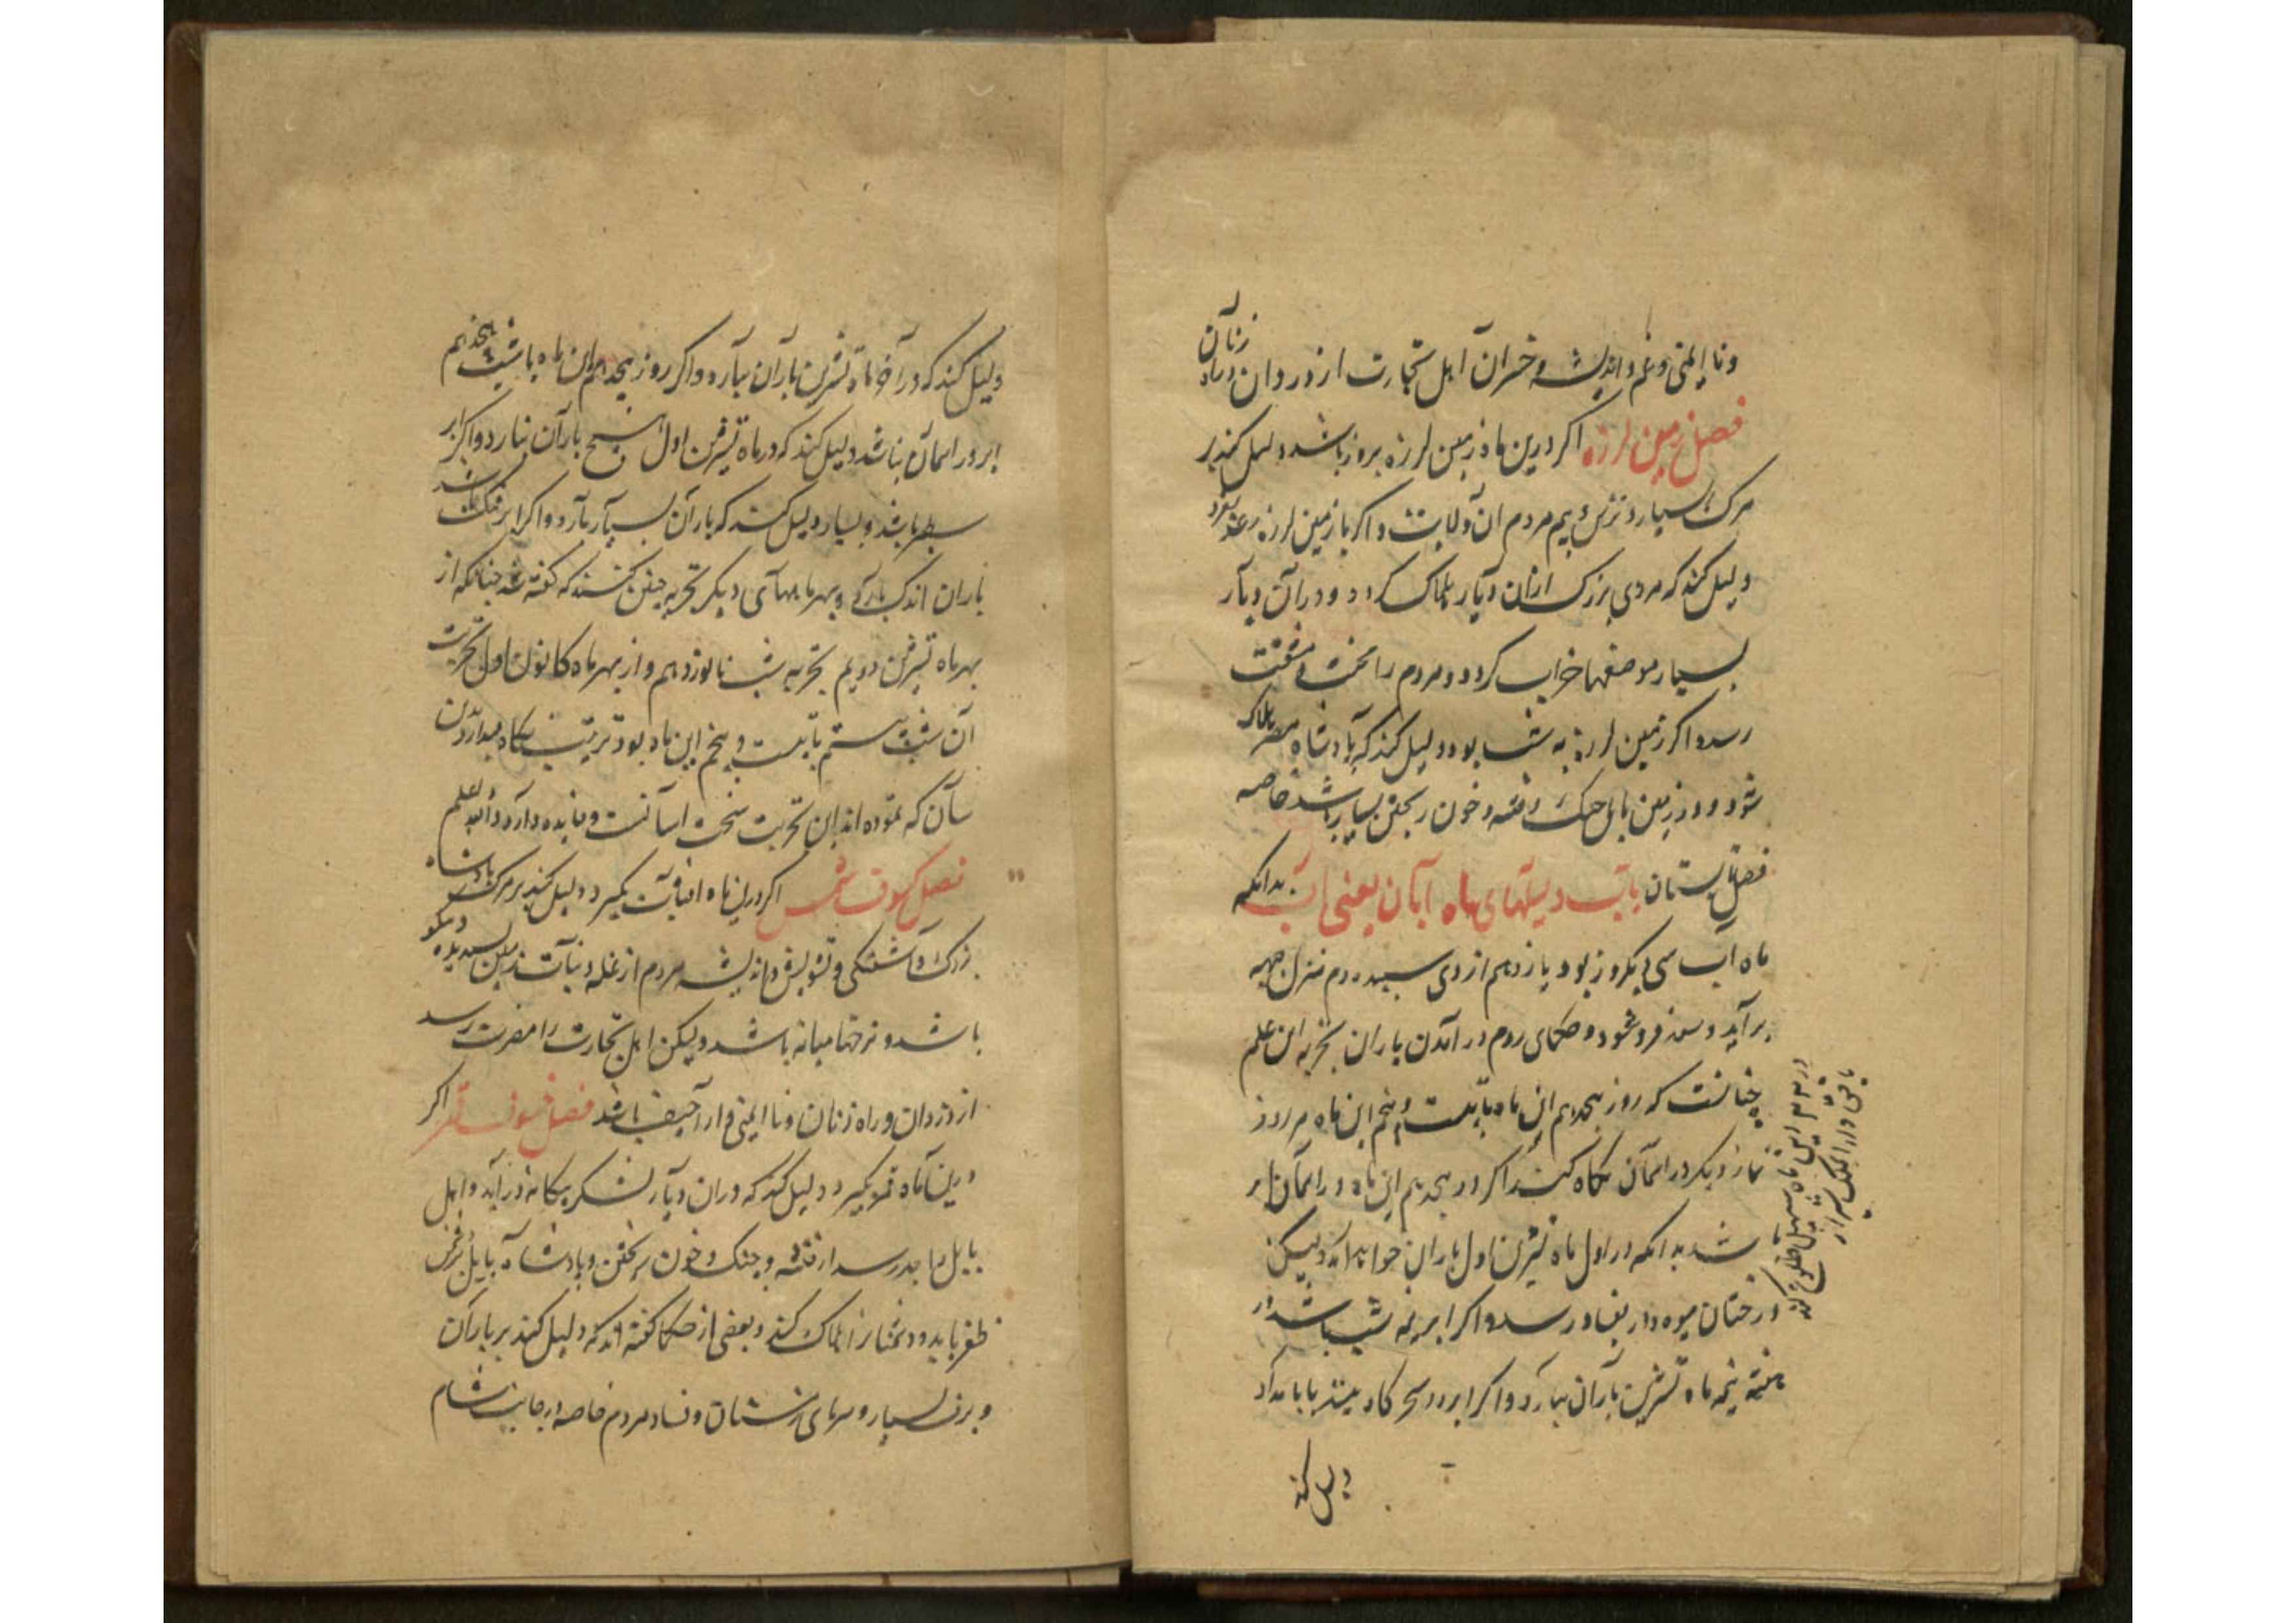 ونا ایمنی و غم و اندیشه و خسران اهل تجارت از دزدان و راه زنان
فصل زمین لرزه اکر درین ماه زمین لرزه بروز باشد دلیل کند بر
مرک بسیار و ترس و بیم مردم ان ولایت و اکر با زمین لرزه رعد بود
دلیل کند که مردی بزرک ازان دیار هلاک کردد و در ان دیار
بسیار موضعها خراب کردد و مردم را محنت و مشقت
رسد و اکر زمین لرزه به شب بود دلیل کند که پادشاه مصر هلاک
شود و در زمین بابل جنک و فتنه و خون ریختن بسیار باشد خاصه
فصل تابستان باب دلیلهای ماه آبان یعنی اب بدانکه
ماه اب سی و یکروز بود یازدهم از وی سپیده دم منزل جبهه
برآید و سعد فرو شود و حکمای روم در آمدن باران تجربه این علم
چنانست که روز هجدهم این ماه تا بیست و پنجم این ماه هر روز
نماز دیکر در اسمان نکاه کنند اکر روز هجدهم این ماه در اسمان ابر
باشد بدانکه در اول ماه تیشرین اول باران خواهد آمد ولیکن
درختان میوه دار بغاور رسد و اکر ابر نیمه شب باشد در
هفته نیمه ماه تشرین باران ببارد و اکر ابر در سحرکاه بیند یا بامداد
دلیل کند
در ۲۳ این ماه سهیل طلوع کند
باقی دارالملک شیراز
دلیل کند که در آخر ماه تشرین باران ببارد و اکر روز هجدهم این ماه یا شب هجدهم
ابر در اسمان نباشد دلیل کند که در ماه تیشرین اول هیچ باران نبارد و اکر ابر
سطبر باشد و بسیار دلیل کند که باران بسیار بارد و اکر ابر تنک باشد
باران اندک بارد و بهر ماههای دیکر تجربه چنین کنند که کفته شد چنانکه از
بهر ماه تیشرین دویم تجربه شب نانوزدهم و از بهر ماه کانون اول تجربت
آن شب بیستم تا بیست و پنجم این ماه بود ترتیب نکاه میدارد بدین
سان که نموده اند این تجربت سخت اسانست و فایده دارد والله اعلم
فصل کسوف شمس اکر درین ماه افتاب بکیرد دلیل کند بر مرک پادشاه
بزرک و آشفتکی و تشویش و اندیشه مردم از غله و نبات زمین پسندیده و نیکو
باشد و نرخها میانه باشد ولیکن اهل تجارت را مضرت رسد
از دزدان و راه زنان و نا ایمنی و اراجیف باشد فصل خسوف قمر اکر
درین ماه قمر بکیرد دلیل کند که دران دیار لشکر بیکانه درآید و اهل
بابل را بد رسد از فتنه و جنک و خون ریختن و پادشاه بابل بر دشمن
ظفر یابد و دشمنانرا هلاک کند و بعضی از حکما کفته اند که دلیل کند بر باران
و برف بسیار و سرمای زمستان و فساد مردم خاصه در جانب شام